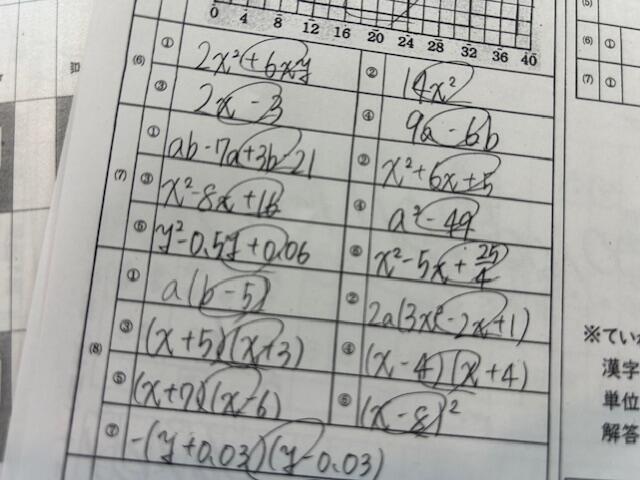 0 4 8 12 16 20 24 28 32 36 40
(6) ① 2x²+6xy ② 14x²
③ 2x-3 ④ 9a-6b
(7) ① ab-7a+3b-21 ② x²+6x+5
③ x²-8x+16 ④ a²-49
⑤ y²-0.5y+0.06 ⑥ x²-5x+25/4
(8) ① a(b-5) ② 2a(3x²-2x+1)
③ (x+5)(x+3) ④ (x-4)(x+4)
⑤ (x+7)(x-6) ⑥ (x-8)²
⑦ -(y+0.03)(y-0.03)
(5)
(6) ①
(7) ①
※てい
漢字
単位
解答